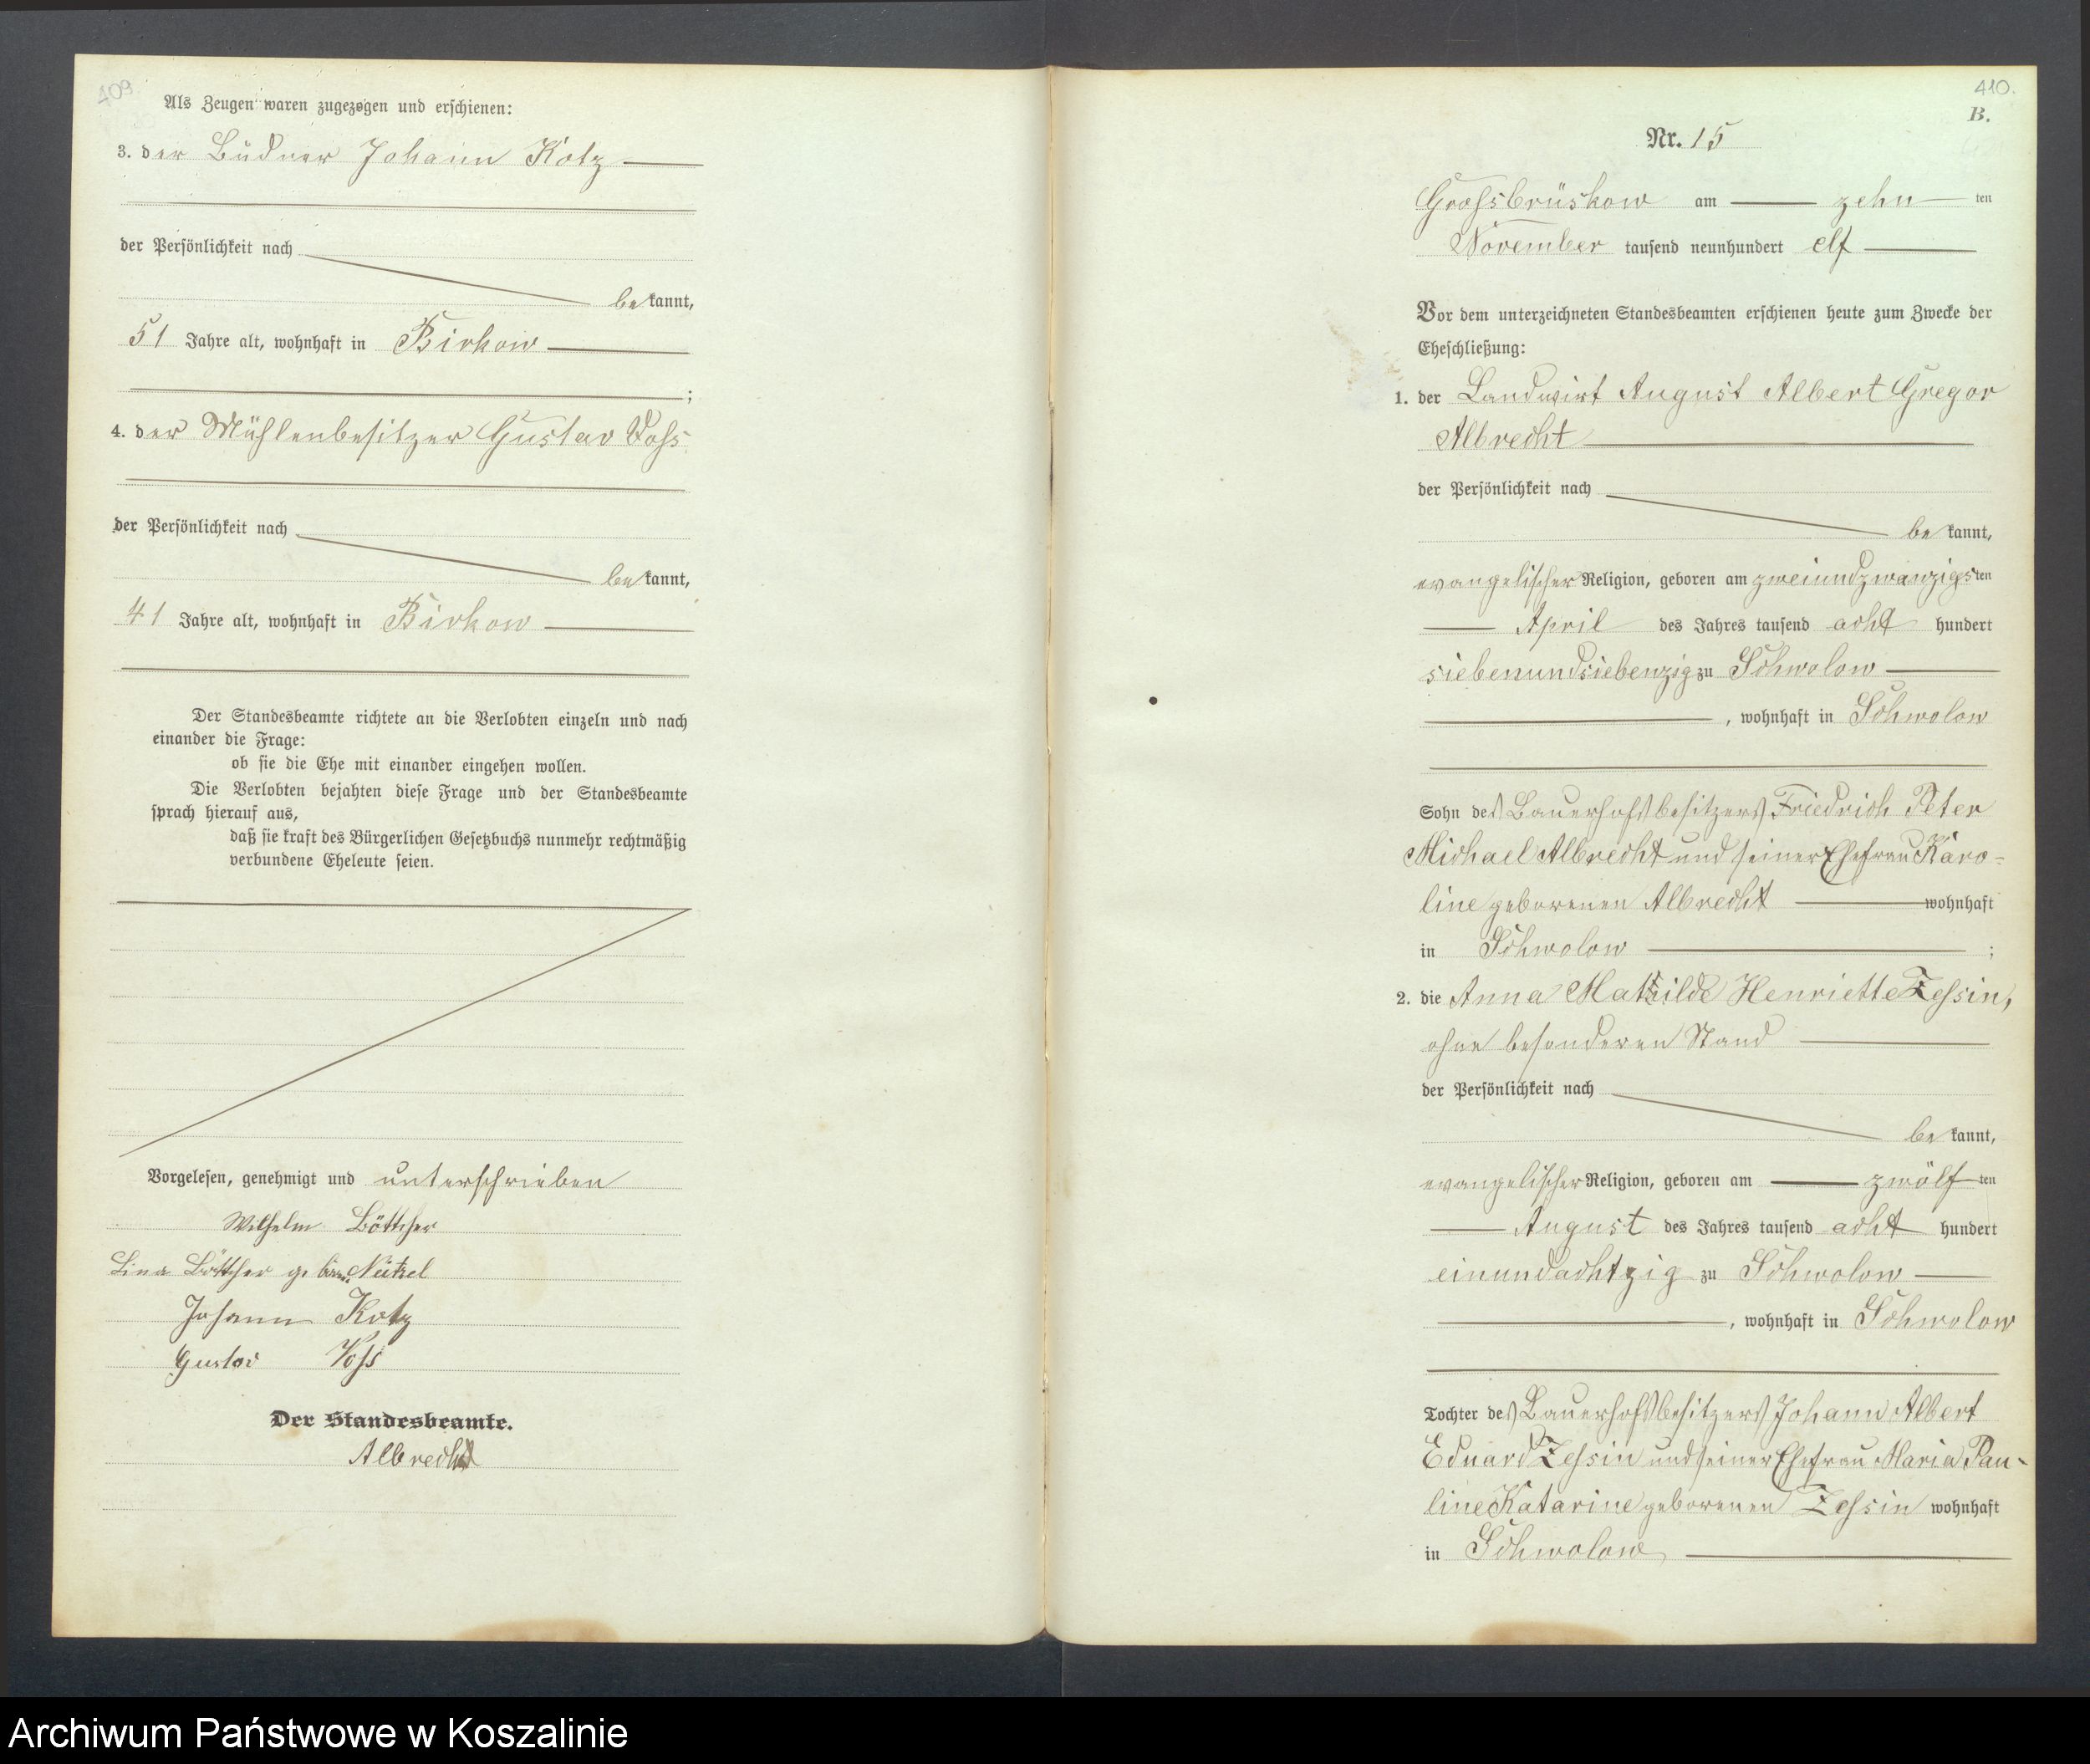 409
Als Zeugen waren zugezogen und erschienen:
3. der Büdner Johann Kotz
der Persönlichkeit nach
bekannt,
51 Jahre alt, wohnhaft in Birkow
;
4. der Mühlenbesitzer Gustav Voss
der Persönlichkeit nach
bekannt,
41 Jahre alt, wohnhaft in Birkow
Der Standesbeamte richtete an die Verlobten einzeln und nach
einander die Frage:
ob sie die Ehe mit einander eingehen wollen.
Die Verlobten bejahten diese Frage und der Standesbeamte
sprach hierauf aus,
daß sie kraft des Bürgerlichen Gesetzbuchs nunmehr rechtmäßig
verbundene Eheleute seien.
Vorgelesen, genehmigt und unterschrieben
Wilhelm Böttcher
Lina Böttcher
Johann Kotz
Gustav Voss
Der Standesbeamte.
Albrecht
410.
B.
Nr. 15
Grossbrüskow am zehn ten
November tausend neunhundert elf
Vor dem unterzeichneten Standesbeamten erschienen heute zum Zwecke der
Eheschließung:
1. der Landwirt August Albert Gregor
Albrecht
der Persönlichkeit nach
bekannt,
evangelischer Religion, geboren am zweiundzwanzigsten
April des Jahres tausend acht hundert
siebenundsiebenzig zu Schwolow
, wohnhaft in Schwolow
Sohn des Bauerhofsbesitzers Friedrich Peter
Michael Albrecht und seiner Ehefrau Karo-
line geborenen Albrecht wohnhaft
in Schwolow ;
2. die Anna Mathilde Henriette Zessin,
ohne besonderen Stand
der Persönlichkeit nach
bekannt,
evangelischer Religion, geboren am zwölf ten
August des Jahres tausend acht hundert
einundachtzig zu Schwolow
, wohnhaft in Schwolow
Tochter des Bauerhofsbesitzers Johann Albert
Eduard Zessin und seiner Ehefrau Maria Pau-
line Katarine geborenen Zessin wohnhaft
in Schwolow
Archiwum Państwowe w Koszalinie